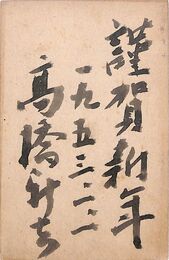 謹賀新年
一九五三・一・一
高橋新吉